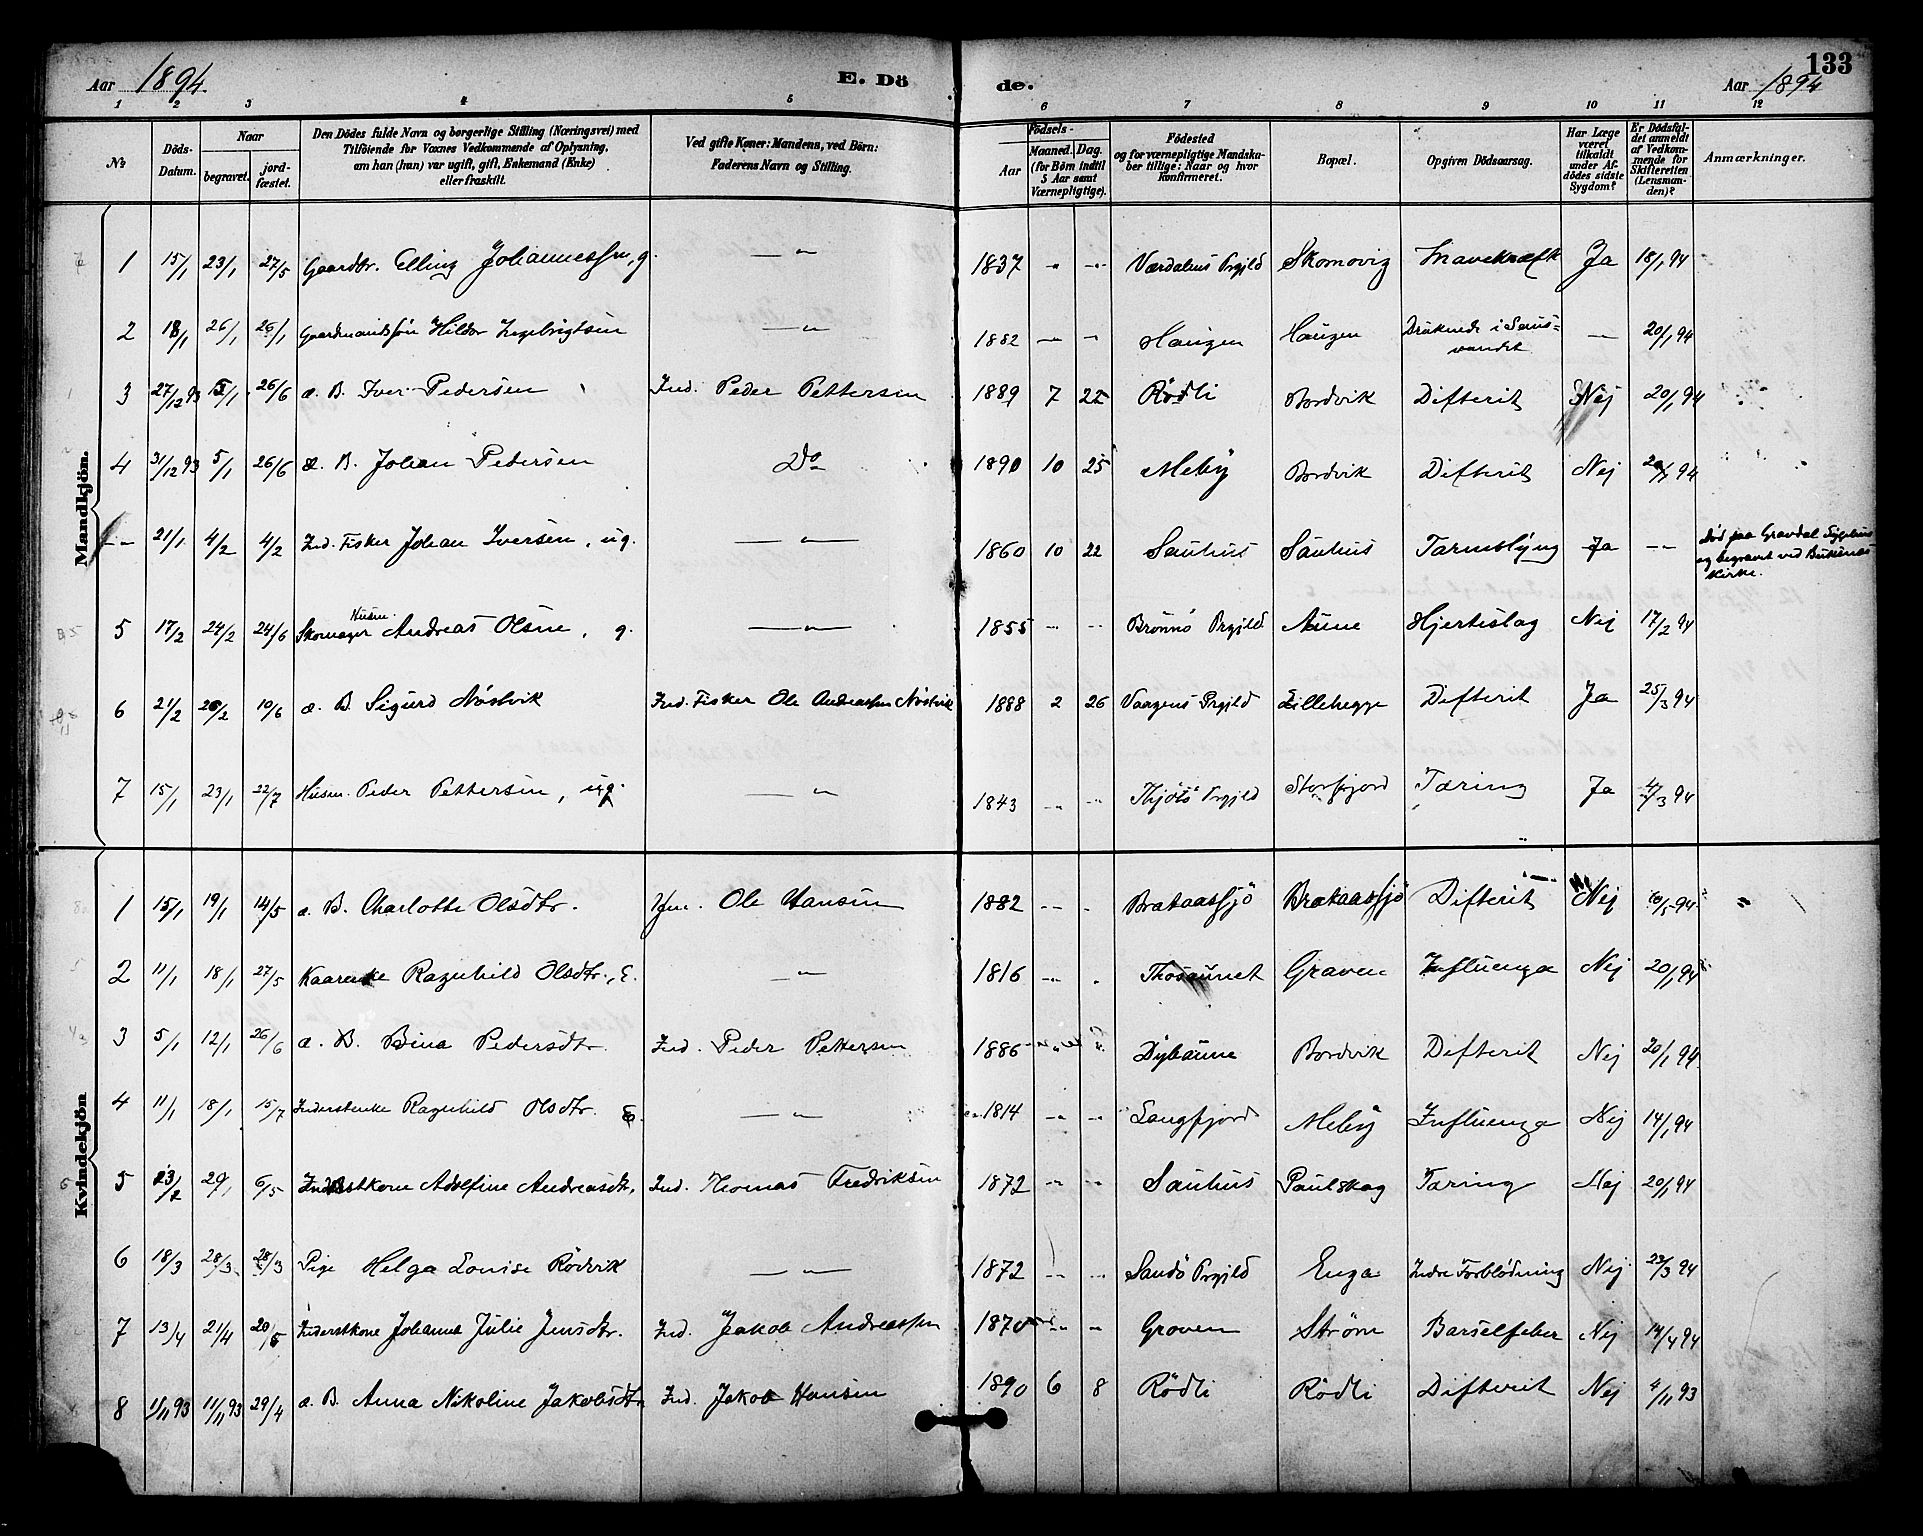 133
Aar 1894. E. Dö de. Aar 1894
1 2 3 4 5 6 7 8 9 10 11 12
№ Döds-Datum. Naar begravet. jord-fæstet. Den Dödes fulde Navn og borgerlige Stilling (Næringsvei) med Tilföiende for Voxnes Vedkommende af Oplysning, om han (hun) var ugift, gift, Enkemand (Enke) eller fraskilt. Ved gifte Koner: Mandens, ved Börn: Faderens Navn og Stilling. Födsels- Aar Maaned. Dag. (for Börn indtil 5 Aar samt Værnepligtige). Födested og for værnepligtige Mandska-ber tillige: Naar og hvor konfirmeret. Bopæl. Opgiven Dödsaarsag. Har Læge været tilkaldt under Af-dödes sidste Sygdom? Er Dödsfal-det anmeldt af Vedkom-mende for Skifteretten (Lensman-den)? Anmærkninger.
Mandkjön.
1 15/1 23/1 27/5 Gaardbr. Elling Johannessen, g. — " — 1837 - " - - " - Værdalens Prgjld Skomovig Mavekræft Ja 18/1 94
2 18/1 26/1 26/1 Gaardmandssøn Hildor Ingebrigtsen — " — 1882 - " - - " - Haugen Haugen Druknede i Saus=vandet — 20/1 94
3 27/12 93 5/1 26/6 æ. B. Iver Pedersen Ind. Peder Pettersen 1889 7 22 Rödli Bordvik Difterit Nej 20/1 94
4 31/12 93 5/1 26/6 æ. B. Johan Pedersen Do 1890 10 25 Meby Bordvik Difterit Nej 20/1 94
- " - 21/1 4/2 4/2 Ind. Fisker Johan Iversen, ug. — " — 1860 10 22 Sauhus Sauhus Tarmslyng Ja - " - Död paa Gravdal Sygehus og begravet ved Buksnæs Kirke.
5 17/2 24/2 24/6 Husm. Skomager Andreas Olsen, g. — " — 1855 - " - - " - Brönnö Prgjld Aune Hjerteslag Nej 17/2 94
6 21/2 26/2 10/6 æ. B. Sigurd Nöstvik Ind. Fisker Ole Andreassen Nöstvik 1888 2 26 Vaagens Prgjld Lillehegge Difterit Ja 25/3 94
7 15/1 23/1 22/7 Husm. Peder Pettersen, ug. — " — 1843 - " - - " - Thjötö Prgjld Storfjord Tæring Ja 4/3 94
Kvindekjön
1 15/1 19/1 14/5 æ. B. Charlotte Olsdtr. Ole Hansen 1882 - " - " Brataassjö Brataassjö Difterit Nej 10/5 94 "
2 11/1 18/1 27/5 Kaarenke Ragnhild Olsdtr., E. — " — 1816 - " - " Thosaunet Graven Influenza Nej 20/1 94
3 5/1 12/1 26/6 æ. B. Bina Pedersdtr Ind. Peder Pettersen 1886 " " Dybaune Bordvik Difterit Nej 20/1 94
4 11/1 18/1 15/7 Inderstenke Ragnhild Olsdtr. E. — " — 1814 - " - - " - Langfjord Meby Influenza Nej 14/1 94
5 23/2 29/1 6/5 Inderstkone Adolfine Andreasdtr, Ind. Thomas Fredriksen 1872 - " - - " - Sauhus Paulskag Tæring Nej 20/1 94
6 18/3 28/3 28/3 Pige Helga Louise Rödvik — " — 1872 - " - - " - Sandö Prgjld Enga Indre Forblödning Nej 22/3 94
7 13/4 21/4 20/5 Inderstkone Johanna Julie Jensdtr. Ind. Jakob Andreassen 1870 - " - - " - Groven Ström Barselfeber Nej 14/4 94
8 1/11 93 11/11 93 29/4 æ. B. Anna Nikoline Jakobsdtr Ind. Jakob Hansen 1890 6 8 Rödli Rödli Difterit Nej 4/11 93